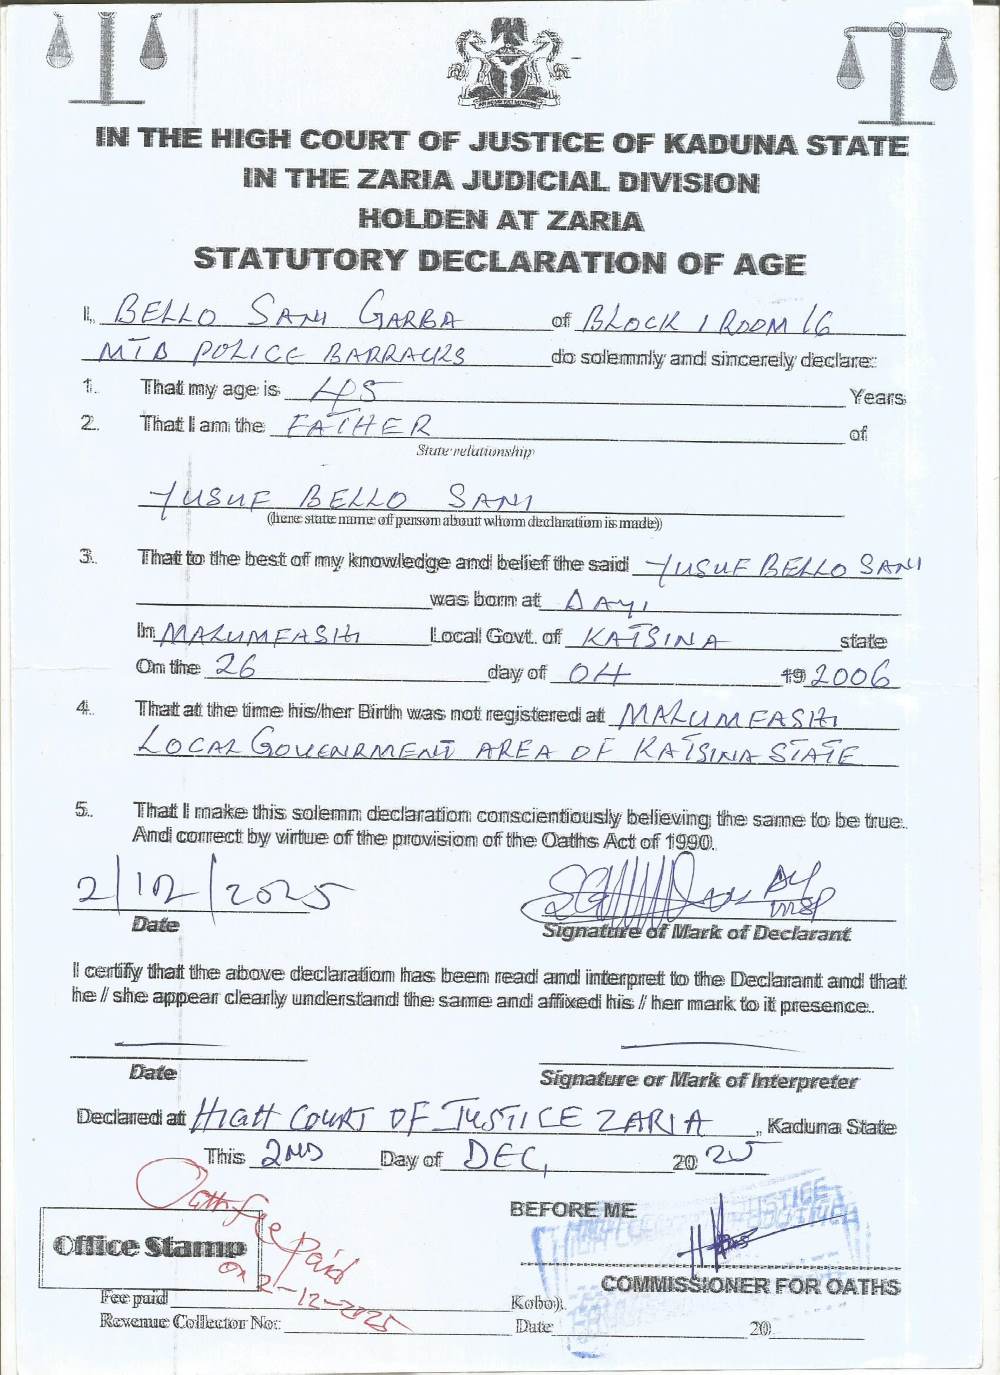 IN THE HIGH COURT OF JUSTICE OF KADUNA STATE
IN THE ZARIA JUDICIAL DIVISION
HOLDEN AT ZARIA
STATUTORY DECLARATION OF AGE
I, BELLO SANI GARBA of BLOCK 1 ROOM 16
MTD POLICE BARRACKS do solemnly and sincerely declare:
1. That my age is 45 Years
2. That I am the FATHER of
State relationship
YUSUF BELLO SANI
(here state name of person about whom declaration is made)
3. That to the best of my knowledge and belief the said YUSUF BELLO SANI
was born at DAYI
In MALUMFASHI Local Govt. of KATSINA state
On the 26 day of 04 19 2006
4. That at the time his/her Birth was not registered at MALUMFASHI
LOCAL GOVENRMENT AREA OF KATSINA STATE
5. That I make this solemn declaration conscientiously believing the same to be true.
And correct by virtue of the provision of the Oaths Act of 1990.
2/12/2025
Date Signature of Mark of Declarant
I certify that the above declaration has been read and interpret to the Declarant and that
he / she appear clearly understand the same and affixed his / her mark to it presence.
Date Signature or Mark of Interpreter
Declared at HIGH COURT OF JUSTICE ZARIA, Kaduna State
This 2ND Day of DEC, 20 25
Oath fee Paid
on 2-12-2025
BEFORE ME
Office Stamp
COMMISSIONER FOR OATHS
Fee paid Kobo).
Revenue Collector No: Date 20